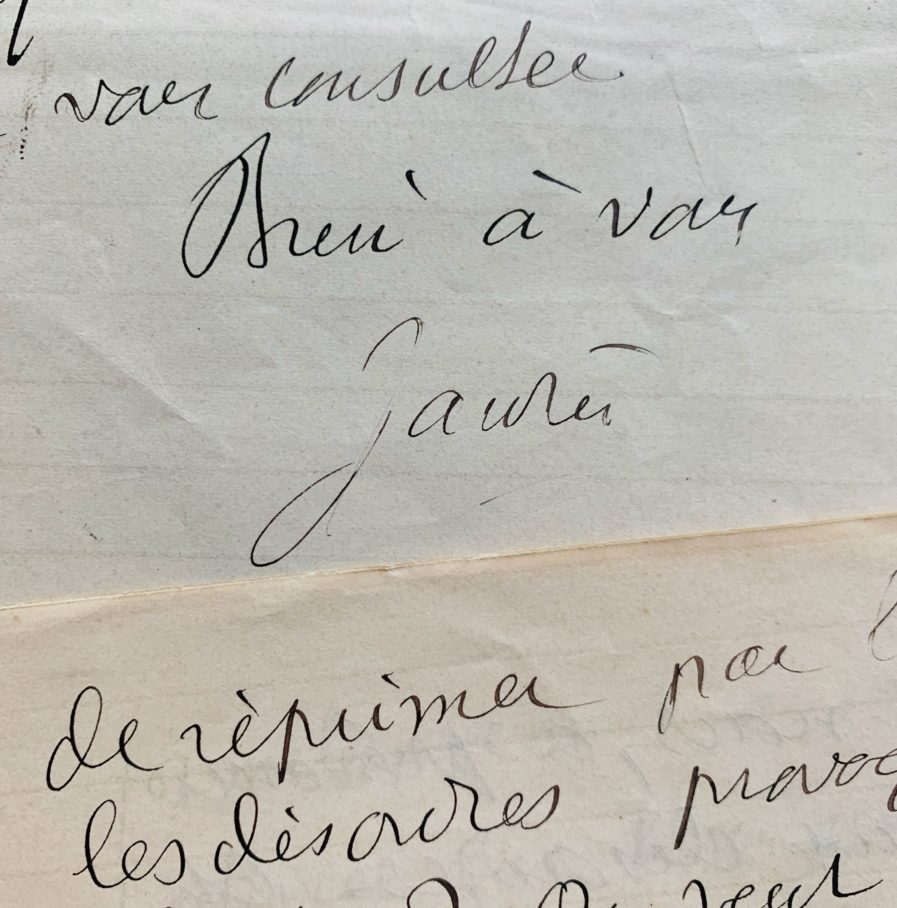 vous consulter
Bien à vous
de réprimer par
les désordres provoq
veut